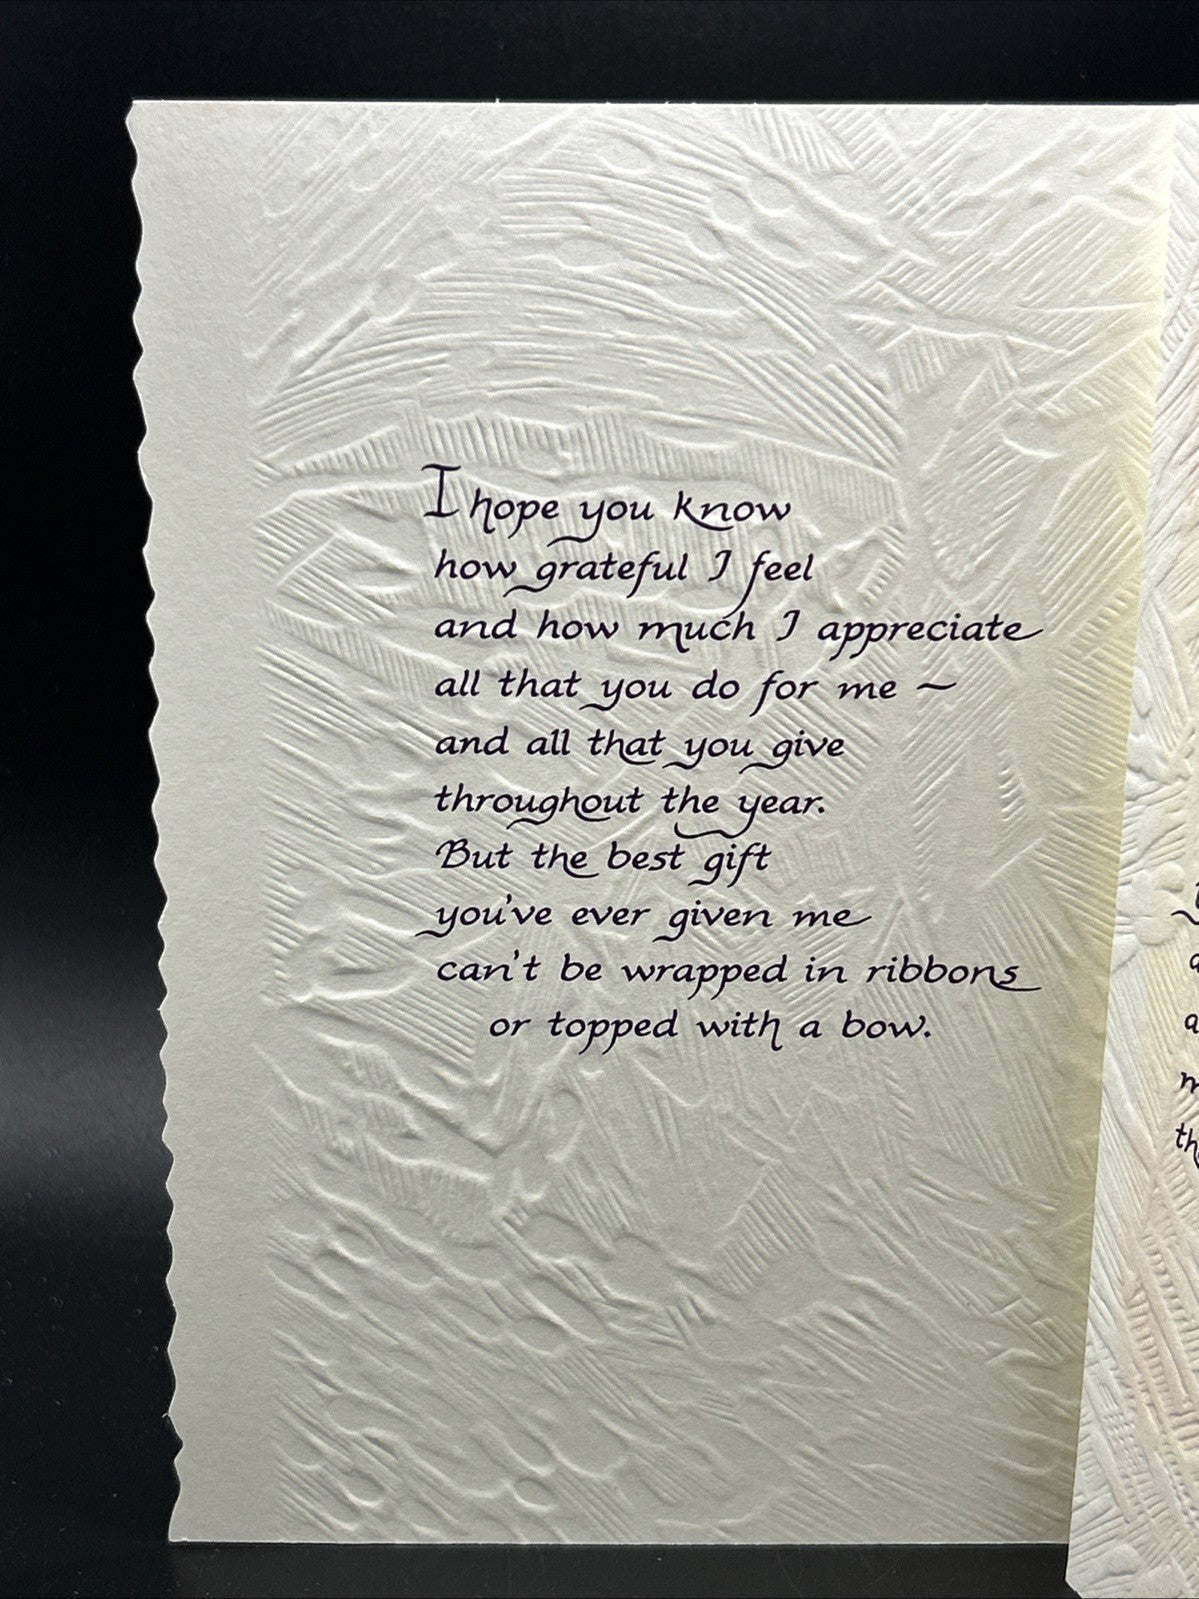 I hope you know
how grateful I feel
and how much I appreciate
all that you do for me ~
and all that you give
throughout the year.
But the best gift
you've ever given me
can't be wrapped in ribbons
or topped with a bow.